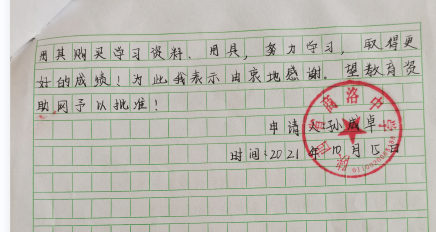 用其购买学习资料、用具，努力学习，取得更
好的成绩！为此我表示由衷地感谢。望教育资
助网予以批准！
申请人：孙成卓
时间：2021年10月15日
商洛中学